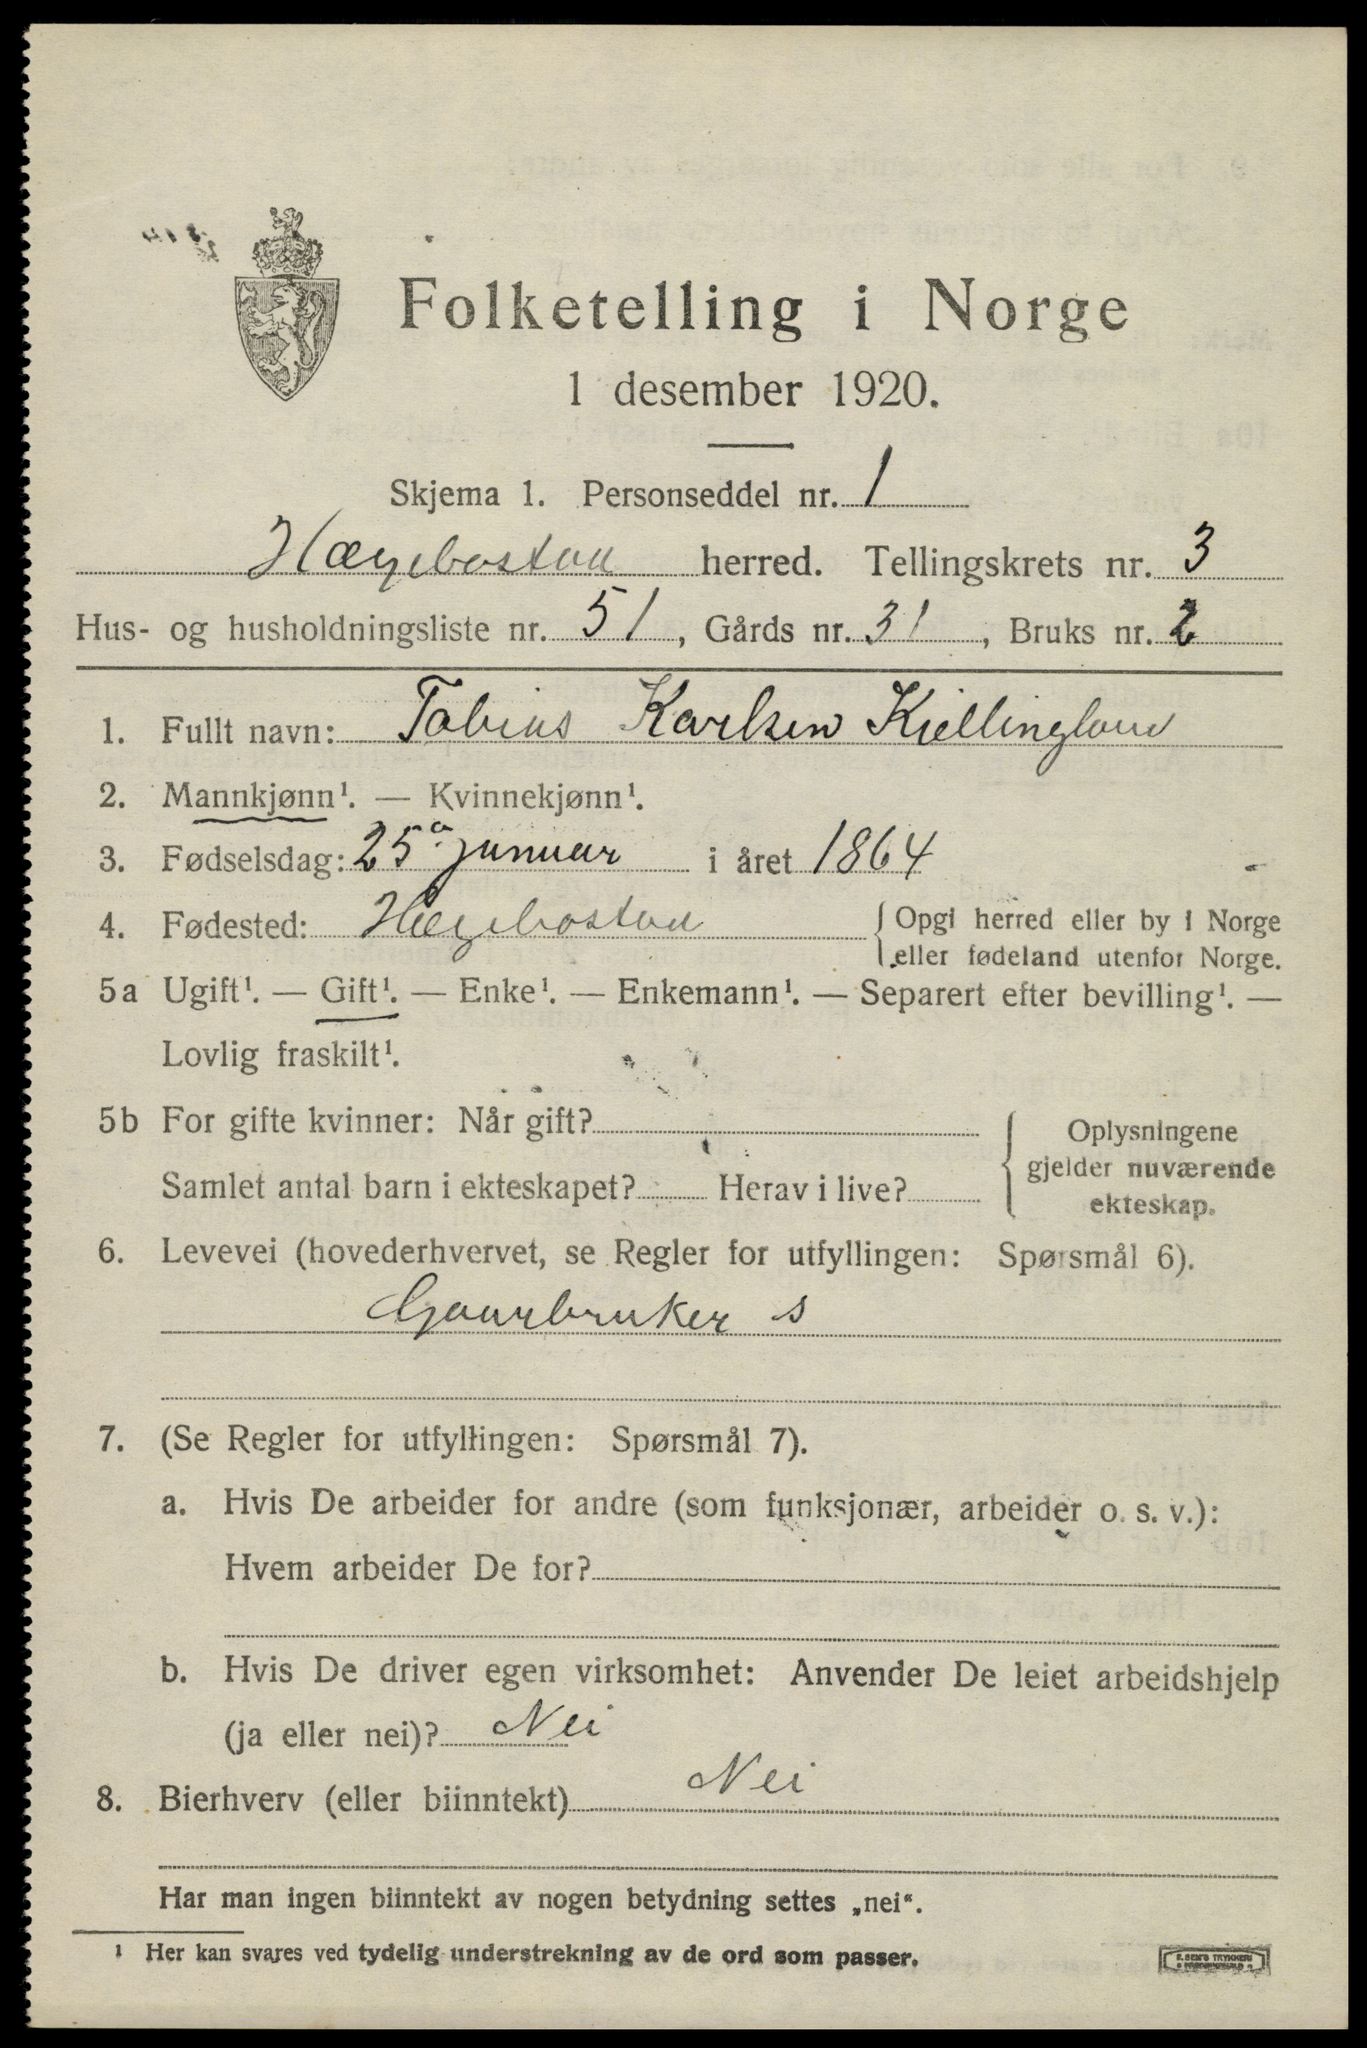 Folketelling i Norge
1 desember 1920.
Skjema 1. Personseddel nr. 1
Hægebostad herred. Tellingskrets nr. 3
Hus- og husholdningsliste nr. 51, Gårds nr. 31, Bruks nr. 2
1. Fullt navn: Tobias Karlsen Kiellingland
2. Mannkjønn¹. — Kvinnekjønn¹.
3. Fødselsdag: 25de januar i året 1864
4. Fødested: Hægebostad { Opgi herred eller by i Norge
eller fødeland utenfor Norge.
5a Ugift¹. — Gift¹. — Enke¹. — Enkemann¹. — Separert efter bevilling¹. —
Lovlig fraskilt¹.
5b For gifte kvinner: Når gift?
Samlet antal barn i ekteskapet? Herav i live?
Oplysningene
gjelder nuværende
ekteskap.
6. Levevei (hovederhvervet, se Regler for utfyllingen: Spørsmål 6).
Gaarbruker s
7. (Se Regler for utfyllingen: Spørsmål 7).
a. Hvis De arbeider for andre (som funksjonær, arbeider o. s. v.):
Hvem arbeider De for?
b. Hvis De driver egen virksomhet: Anvender De leiet arbeidshjelp
(ja eller nei)? Nei
8. Bierhverv (eller biinntekt) Nei
Har man ingen biinntekt av nogen betydning settes „nei“.
¹ Her kan svares ved tydelig understrekning av de ord som passer.